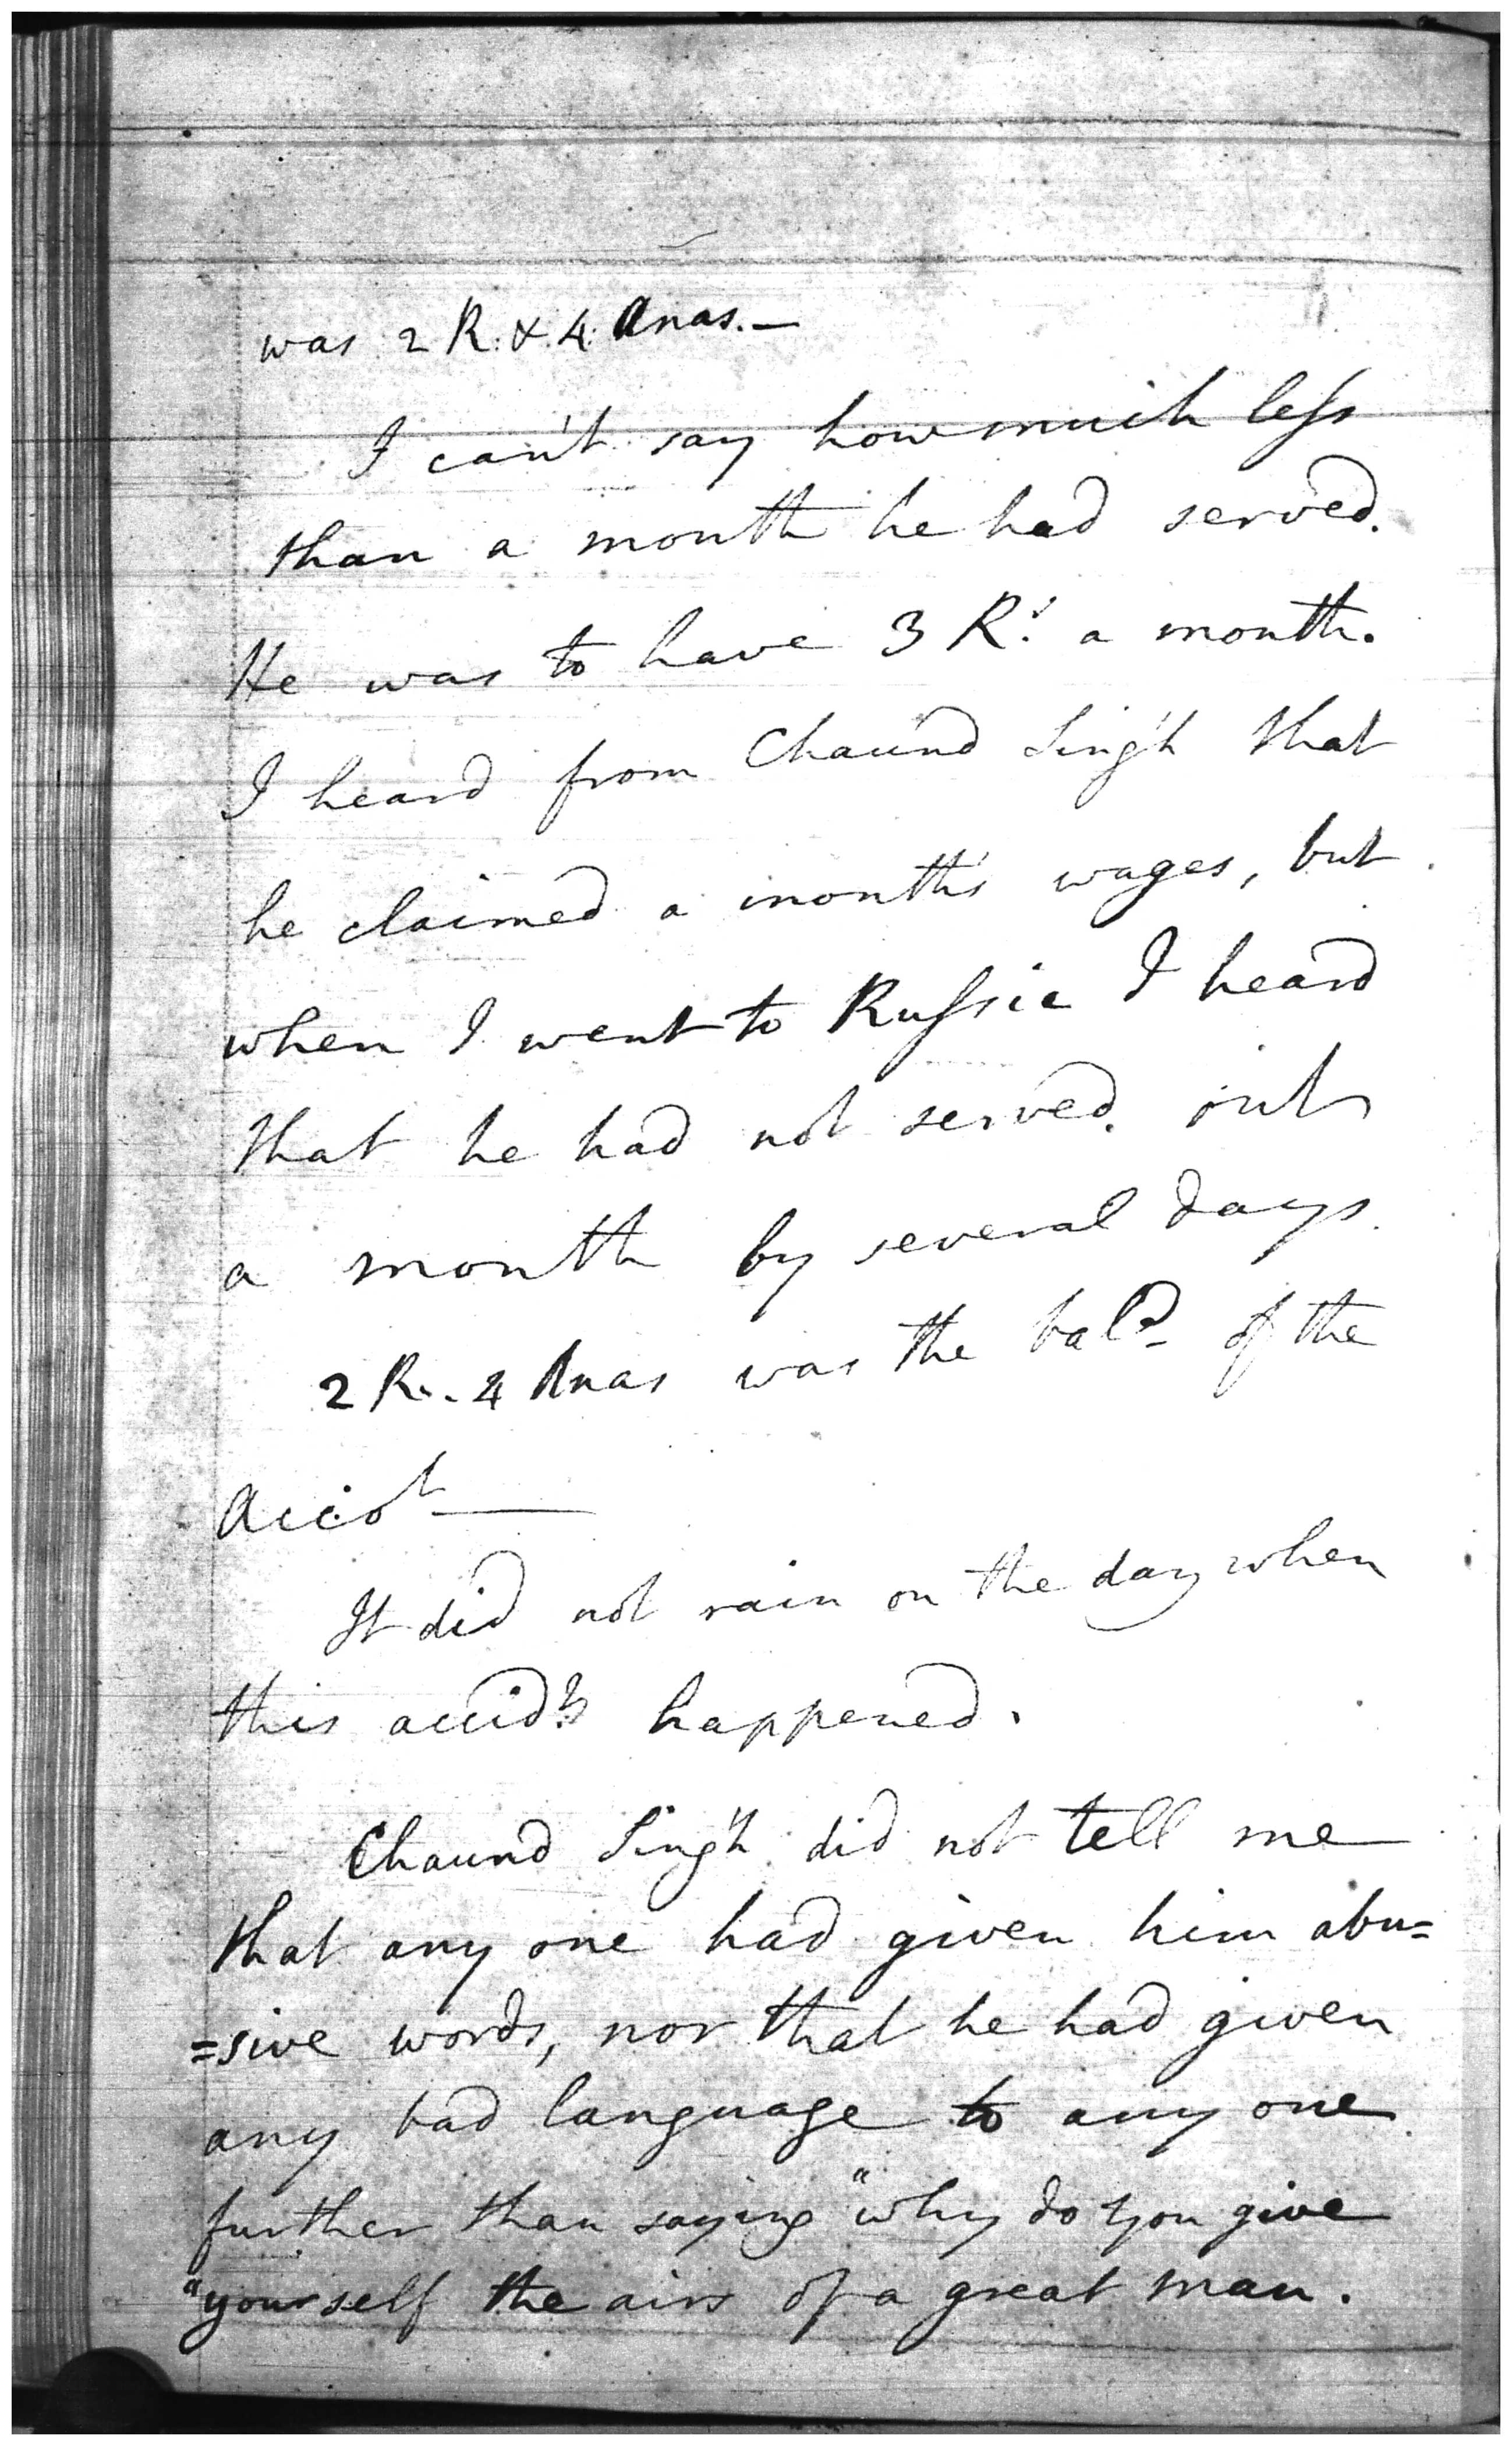 was 2 R. & 4. Anas.—
I can't say how much less
than a month he had served.
He was to have 3 R.s a month.
I heard from Chaund Singh that
he claimed a month's wages, but
when I went to Russia I heard
that he had not served out
a month by several days.
2 R.. 4 Anas was the bal.e of the
Accot —
It did not rain on the day when
this accid.t happened.
Chaund Singh did not tell me
that any one had given him abu=
=sive words, nor that he had given
any bad language to any one
further than saying "why do you give
"yourself the airs of a great man.